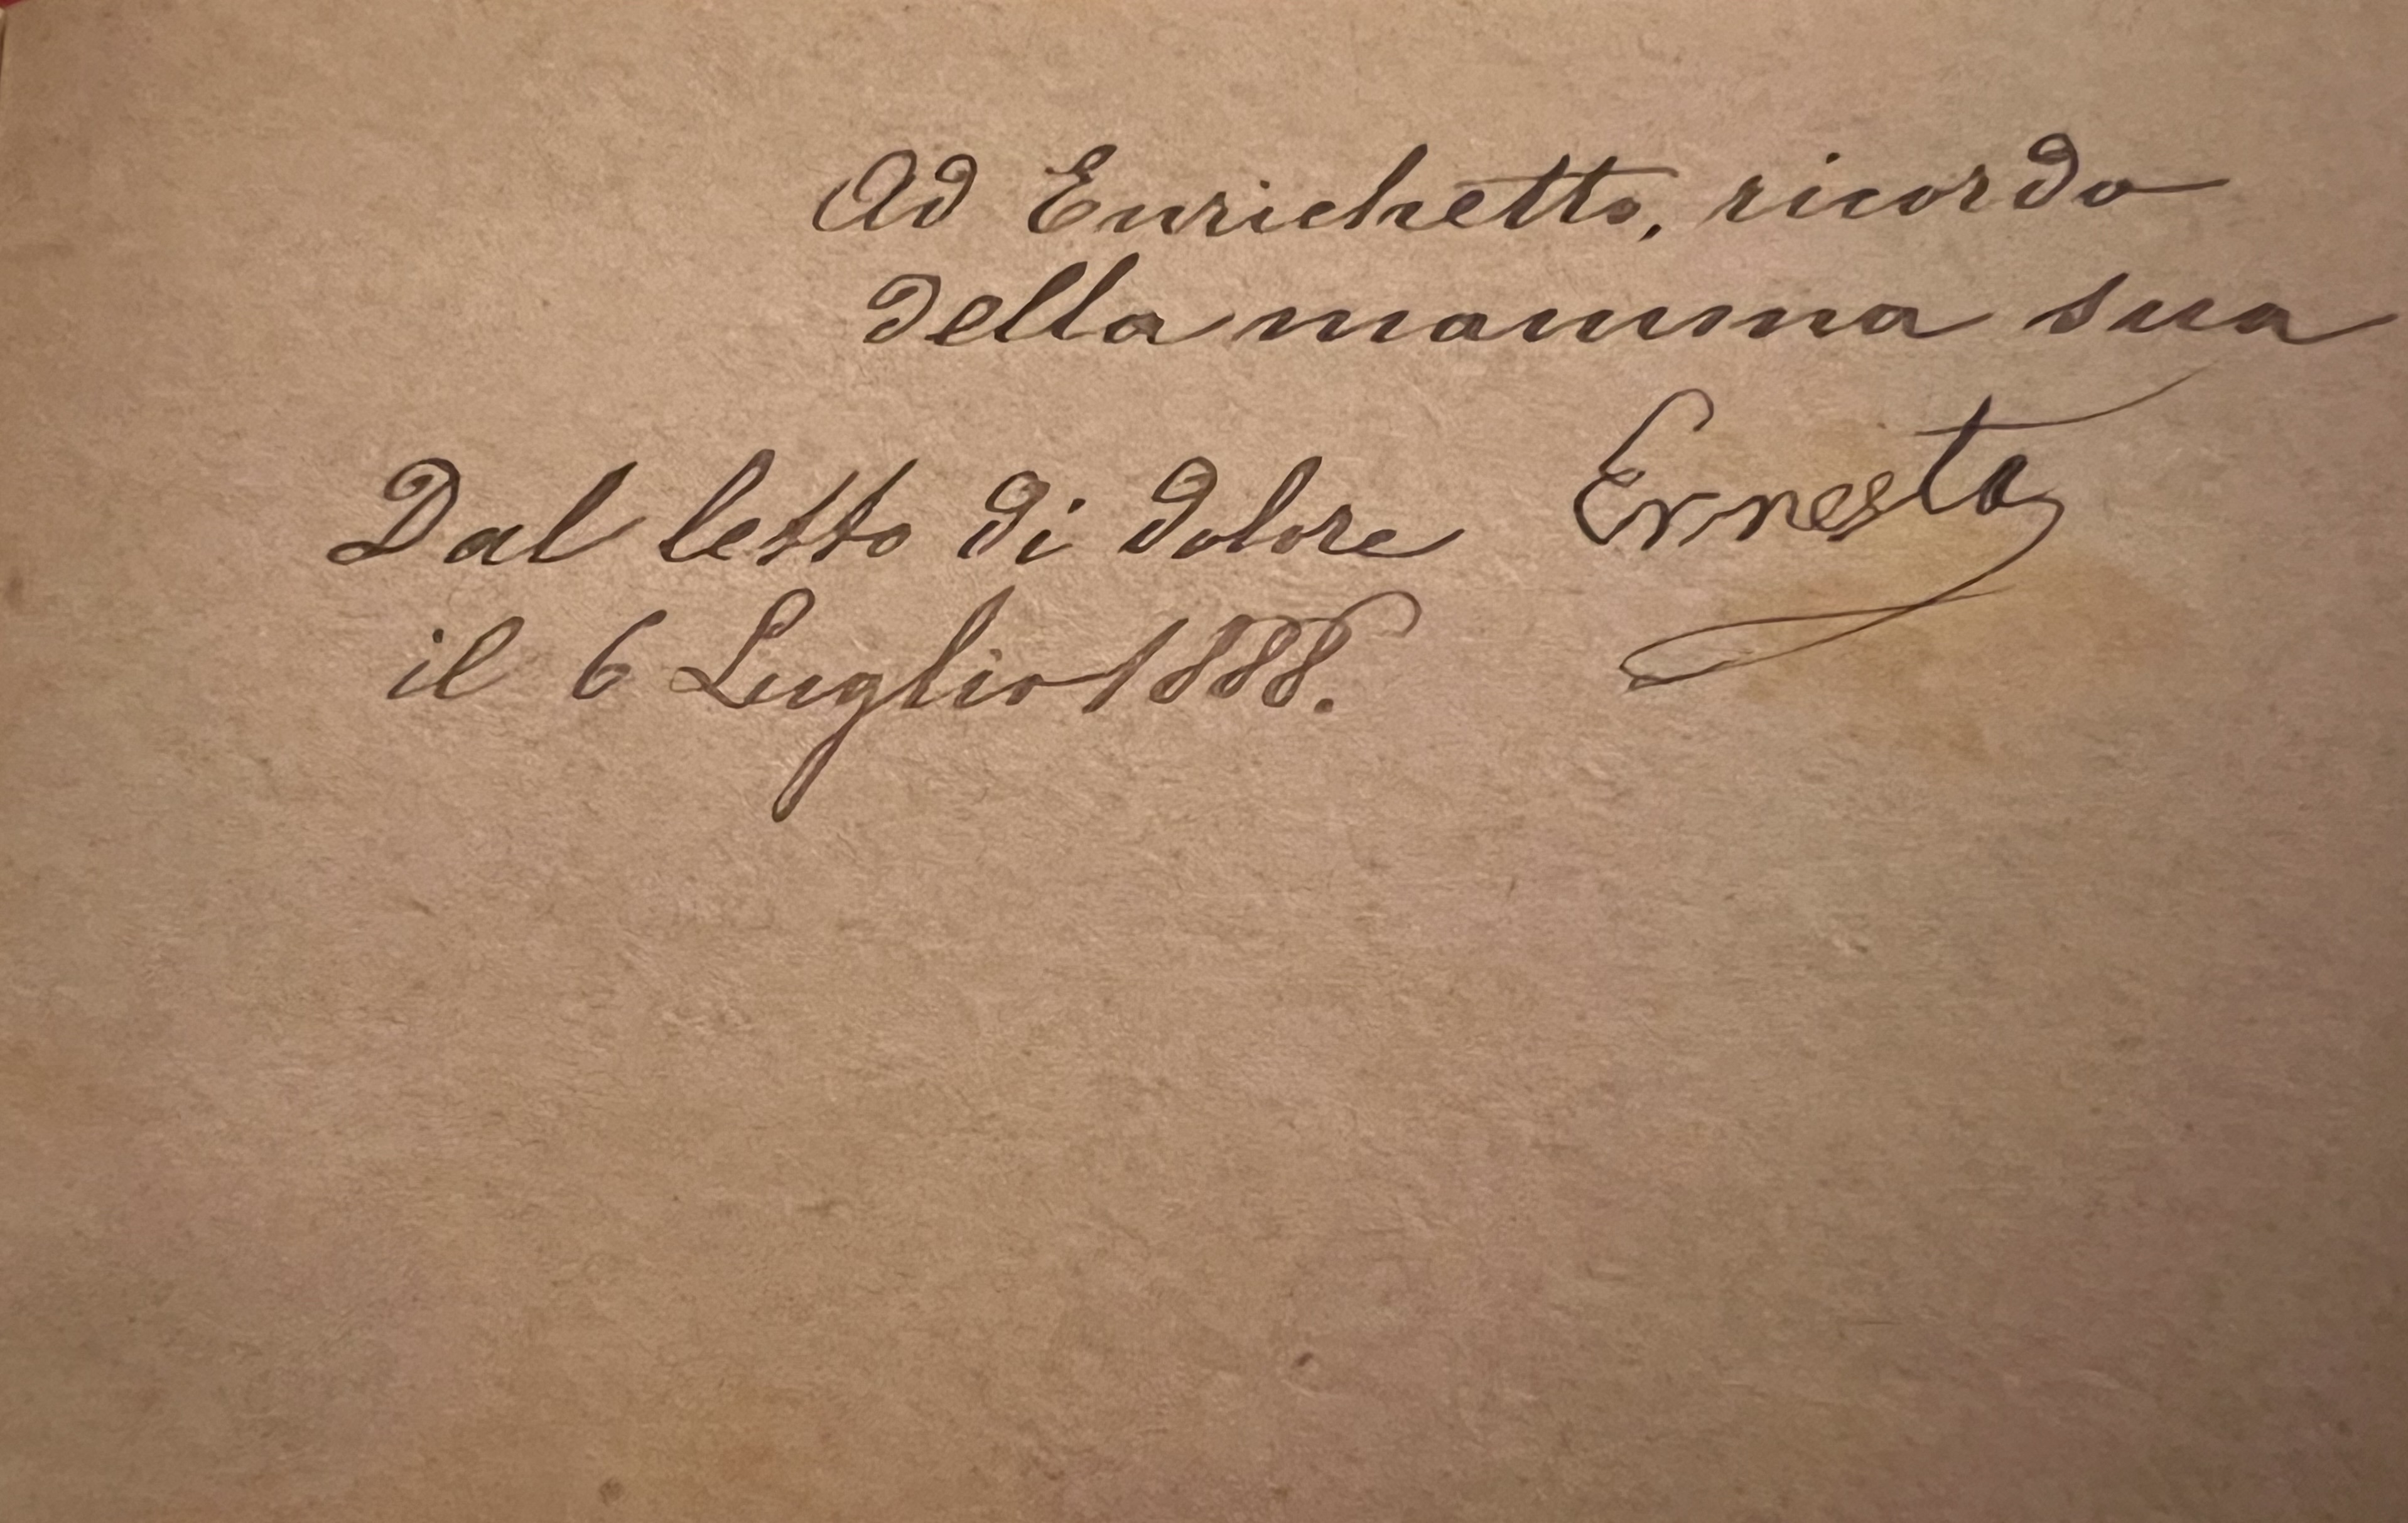 Ad Enrichetto, ricordo
della mamma sua
Ernesta
Dal letto di dolore
il 6 Luglio 1888.